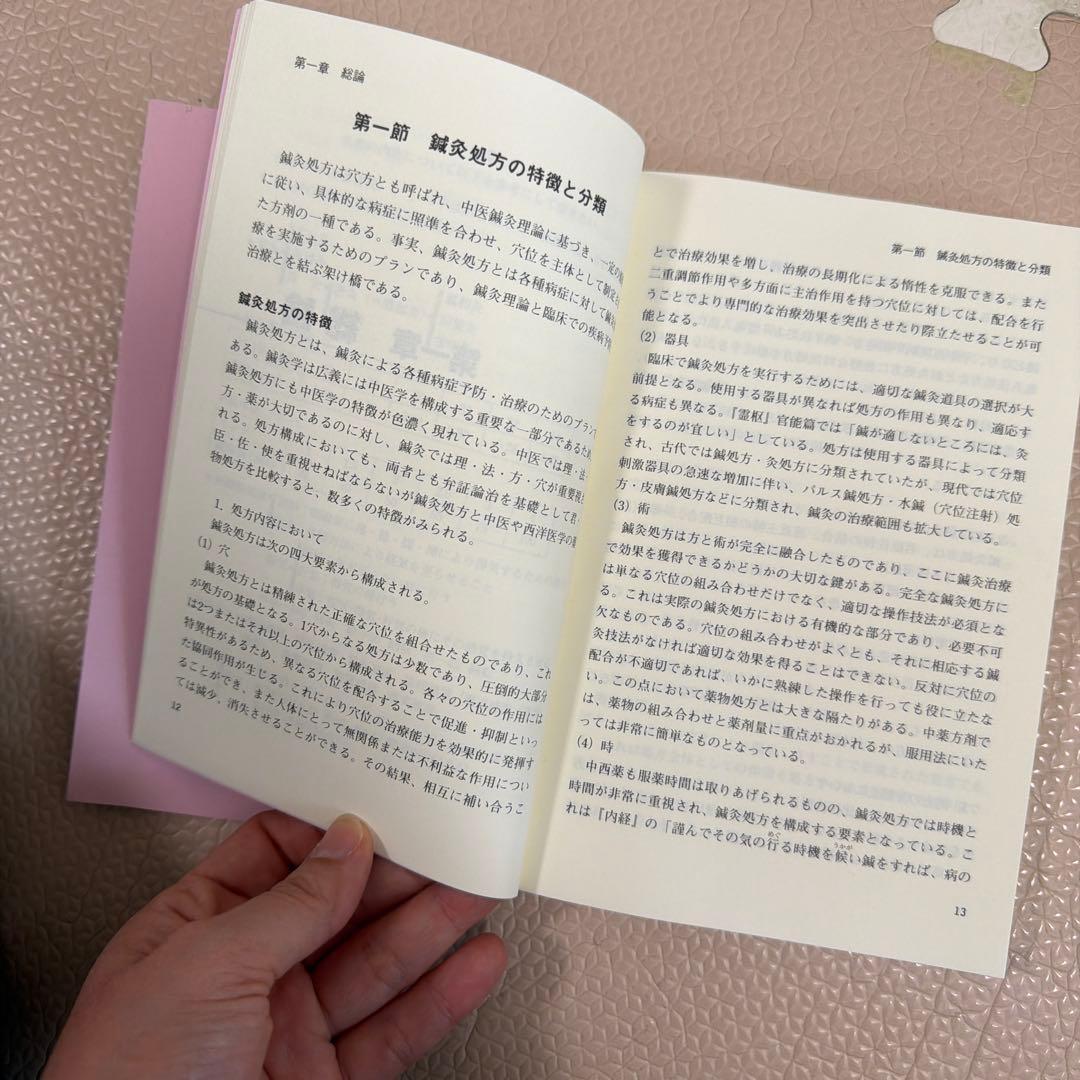 第一章　総論
第一節　鍼灸処方の特徴と分類
鍼灸処方は穴方とも呼ばれ、中医鍼灸理論に基づき、一定の
に従い、具体的な病症に照準を合わせ、穴位を主体として制定さ
た方剤の一種である。事実、鍼灸処方とは各種病症に対して鍼灸
療を実施するためのプランであり、鍼灸理論と臨床での疾病予
治療とを結ぶ架け橋である。
鍼灸処方の特徴
鍼灸処方とは、鍼灸による各種病症予防・治療のためのプラン
ある。鍼灸学は広義には中医学を構成する重要な一部分であるため
鍼灸処方にも中医学の特徴が色濃く現れている。中医では理・法
方・薬が大切であるのに対し、鍼灸では理・法・方・穴が重要視
れる。処方構成においても、両者とも弁証論治を基礎として君・
臣・佐・使を重視せねばならないが鍼灸処方と中医や西洋医学の薬
物処方を比較すると、数多くの特徴がみられる。
1．処方内容において
鍼灸処方は次の四大要素から構成される。
(1) 穴
鍼灸処方とは精練された正確な穴位を組合せたものであり、これ
が処方の基礎となる。1穴からなる処方は少数であり、圧倒的大部分
は2つまたはそれ以上の穴位から構成される。各々の穴位の作用には
特異性があるため、異なる穴位を配合することで促進・抑制といっ
た協同作用が生じる。これにより穴位の治療能力を効果的に発揮す
ることができ、また人体にとって無関係または不利益な作用につい
ては減少、消失させることができる。その結果、相互に補い合うこ
12
第一節　鍼灸処方の特徴と分類
とで治療効果を増し、治療の長期化による惰性を克服できる。また
二重調節作用や多方面に主治作用を持つ穴位に対しては、配合を行
うことでより専門的な治療効果を突出させたり際立たせることが可
能となる。
(2) 器具
臨床で鍼灸処方を実行するためには、適切な鍼灸道具の選択が大
前提となる。使用する器具が異なれば処方の作用も異なり、適応す
る病症も異なる。『霊枢』官能篇では「鍼が適しないところには、灸
をするのが宜しい」としている。処方は使用する器具によって分類
され、古代では鍼処方・灸処方に分類されていたが、現代では穴位
刺激器具の急速な増加に伴い、パルス鍼処方・水鍼（穴位注射）処
方・皮膚鍼処方などに分類され、鍼灸の治療範囲も拡大している。
(3) 術
鍼灸処方は方と術が完全に融合したものであり、ここに鍼灸治療
で効果を獲得できるかどうかの大切な鍵がある。完全な鍼灸処方に
は単なる穴位の組み合わせだけでなく、適切な操作技法が必須とな
る。これは実際の鍼灸処方における有機的な部分であり、必要不可
欠なものである。穴位の組み合わせがよくとも、それに相応する鍼
灸技法がなければ適切な効果を得ることはできない。反対に穴位の
配合が不適切であれば、いかに熟練した操作を行っても役に立たな
い。この点において薬物処方とは大きな隔たりがある。中薬方剤で
は、薬物の組み合わせと薬剤量に重点がおかれるが、服用法にいた
っては非常に簡単なものとなっている。
(4) 時
中西薬も服薬時間は取りあげられるものの、鍼灸処方では時機と
時間が非常に重視され、鍼灸処方を構成する要素となっている。こ
れは『内経』の「謹んでその気の行る時機を候い鍼をすれば、病の
13